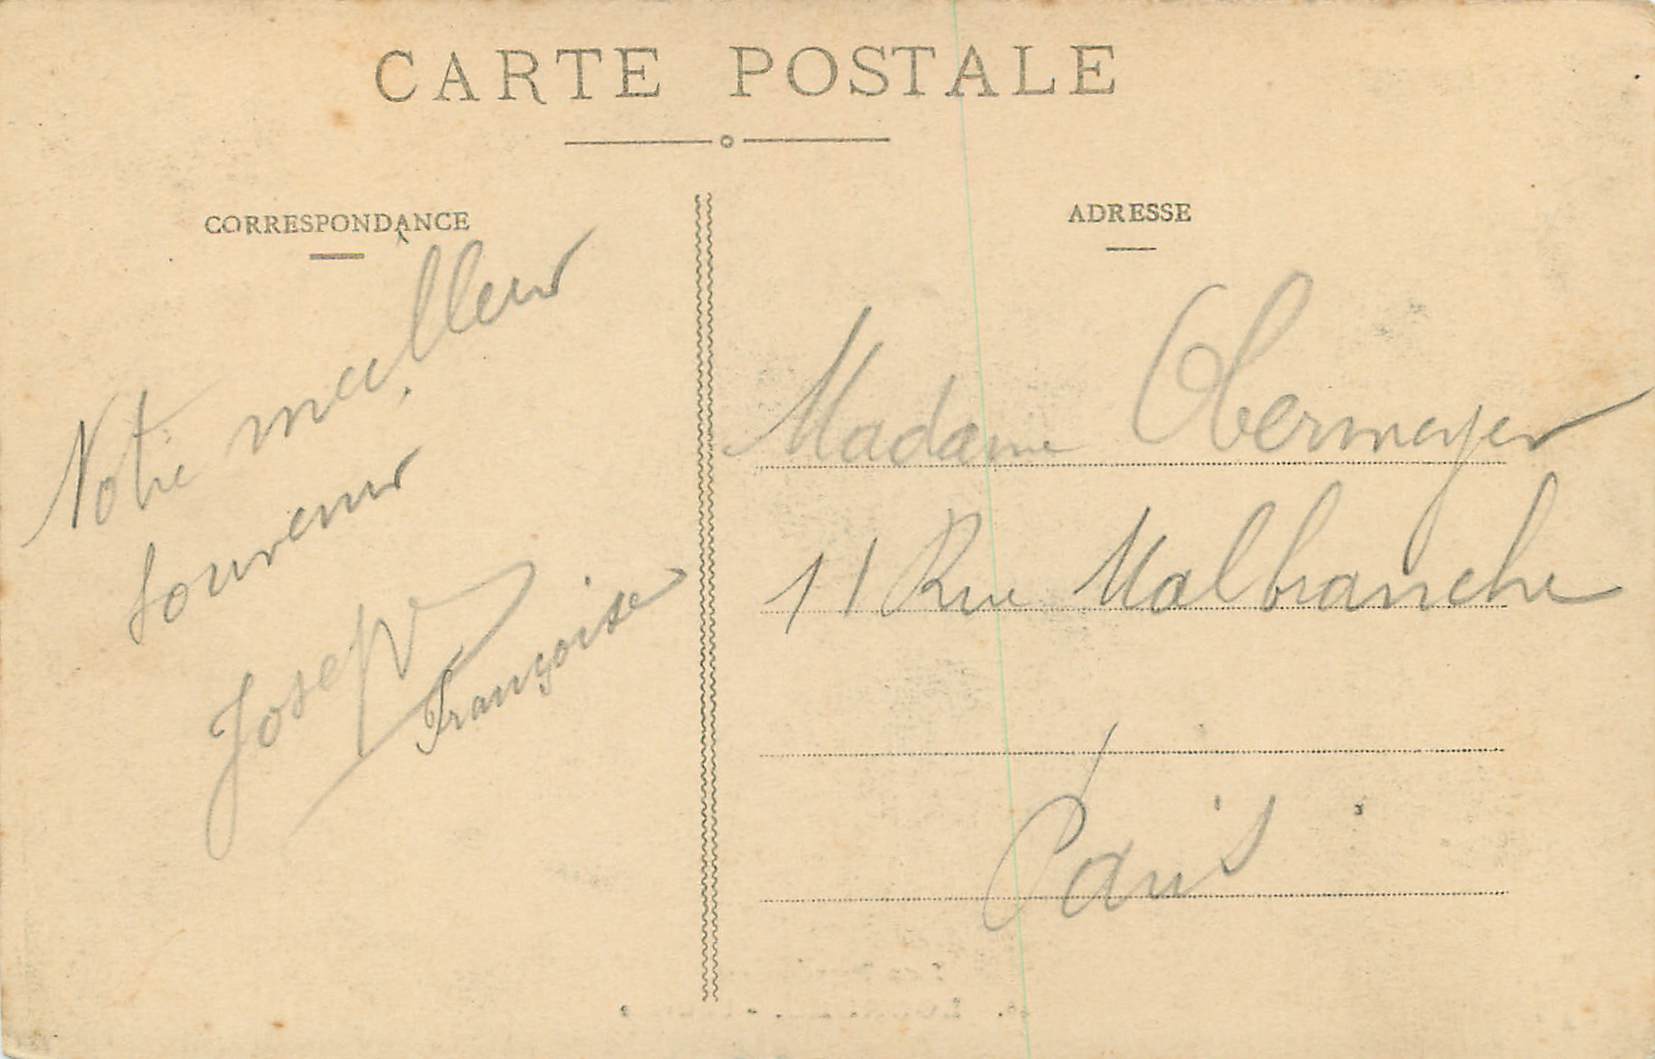 CARTE POSTALE
CORRESPONDANCE
Notre meilleur
souvenir
Joseph
Françoise
ADRESSE
Madame Obermeyer
11 Rue Malbranche
Paris